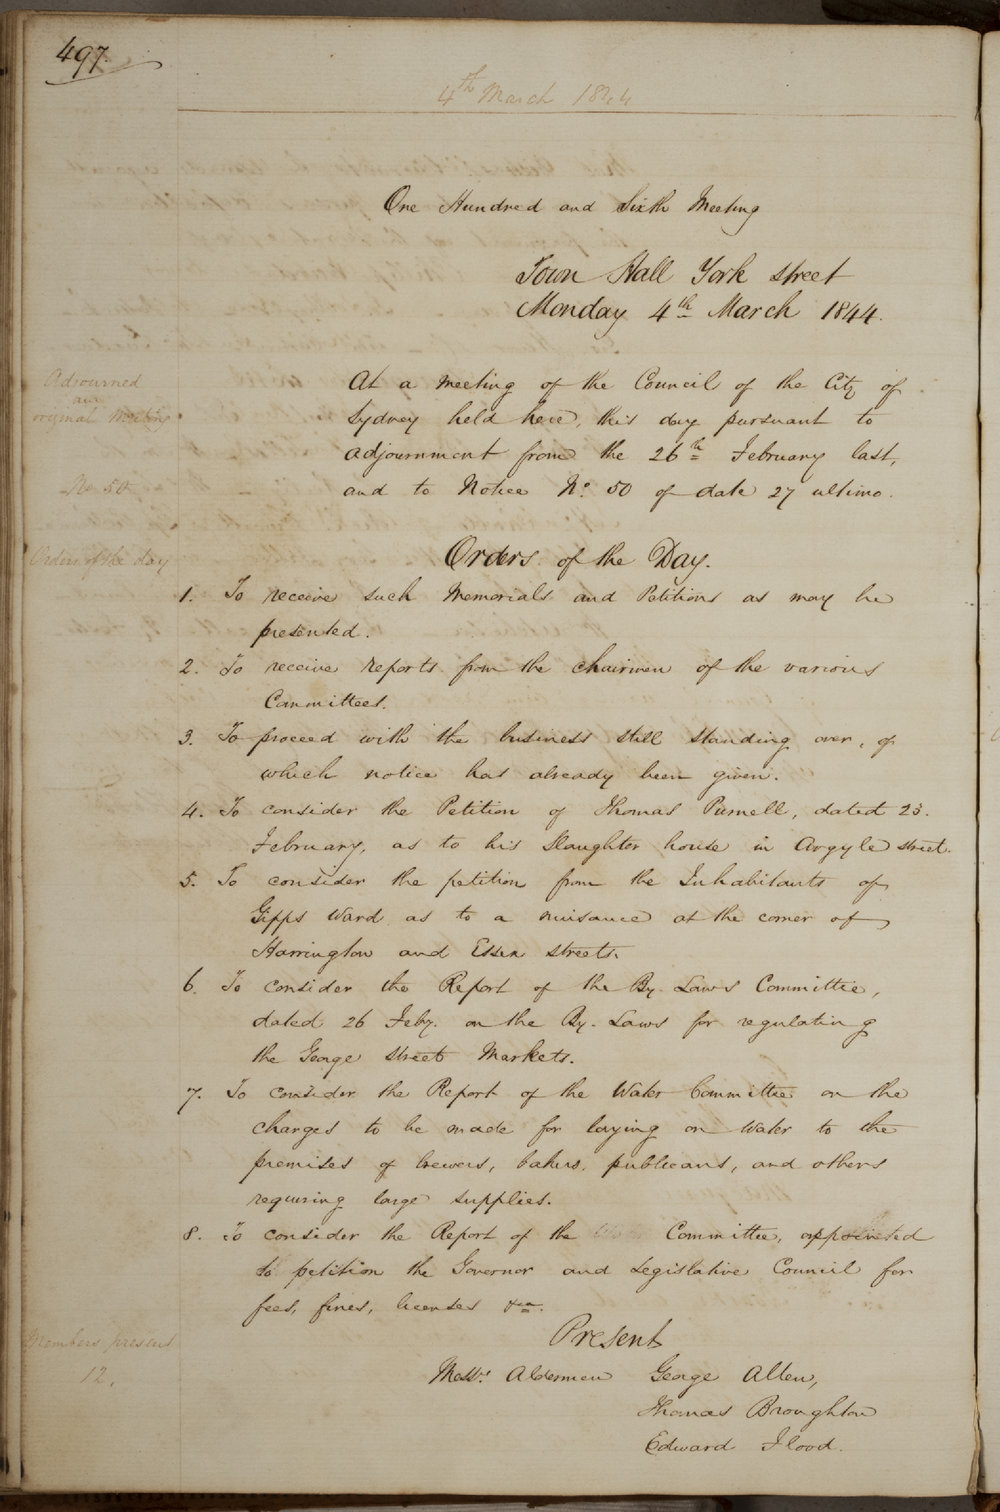 497.
4th March 1844
One Hundred and Sixth Meeting
Town Hall York street
Monday 4th March 1844.
Adjourned
and
original Meeting
At a meeting of the Council of the City of
Sydney held here, this day pursuant to
adjournment from the 26th February last,
No 50
and to Notice No. 50 of date 27 ultimo.
Orders of the day
Orders of the Day.
1. To receive such Memorials and Petitions as may be
presented.
2. To receive reports from the chairmen of the various
Committees.
3. To proceed with the business still standing over, of
which notice has already been given.
4. To consider the Petition of Thomas Purnell, dated 23.
February, as to his Slaughter house in Argyle street.
5. To consider the petition from the Inhabitants of
Gipps Ward as to a nuisance at the corner of
Harrington and Essex streets.
6. To consider the Report of the By. Laws Committee,
dated 26 Feby. on the By. Laws for regulating
the George street Markets.
7. To consider the Report of the Water Committee on the
charges to be made for laying on Water to the
premises of brewers, bakers, publicans, and others
requiring large supplies.
8. To consider the Report of the Committee, appointed
to petition the Governor and Legislative Council for
fees, fines, licenses &ca.
Present
Members present
12.
Messrs Aldermen George Allen,
Thomas Broughton
Edward Flood.